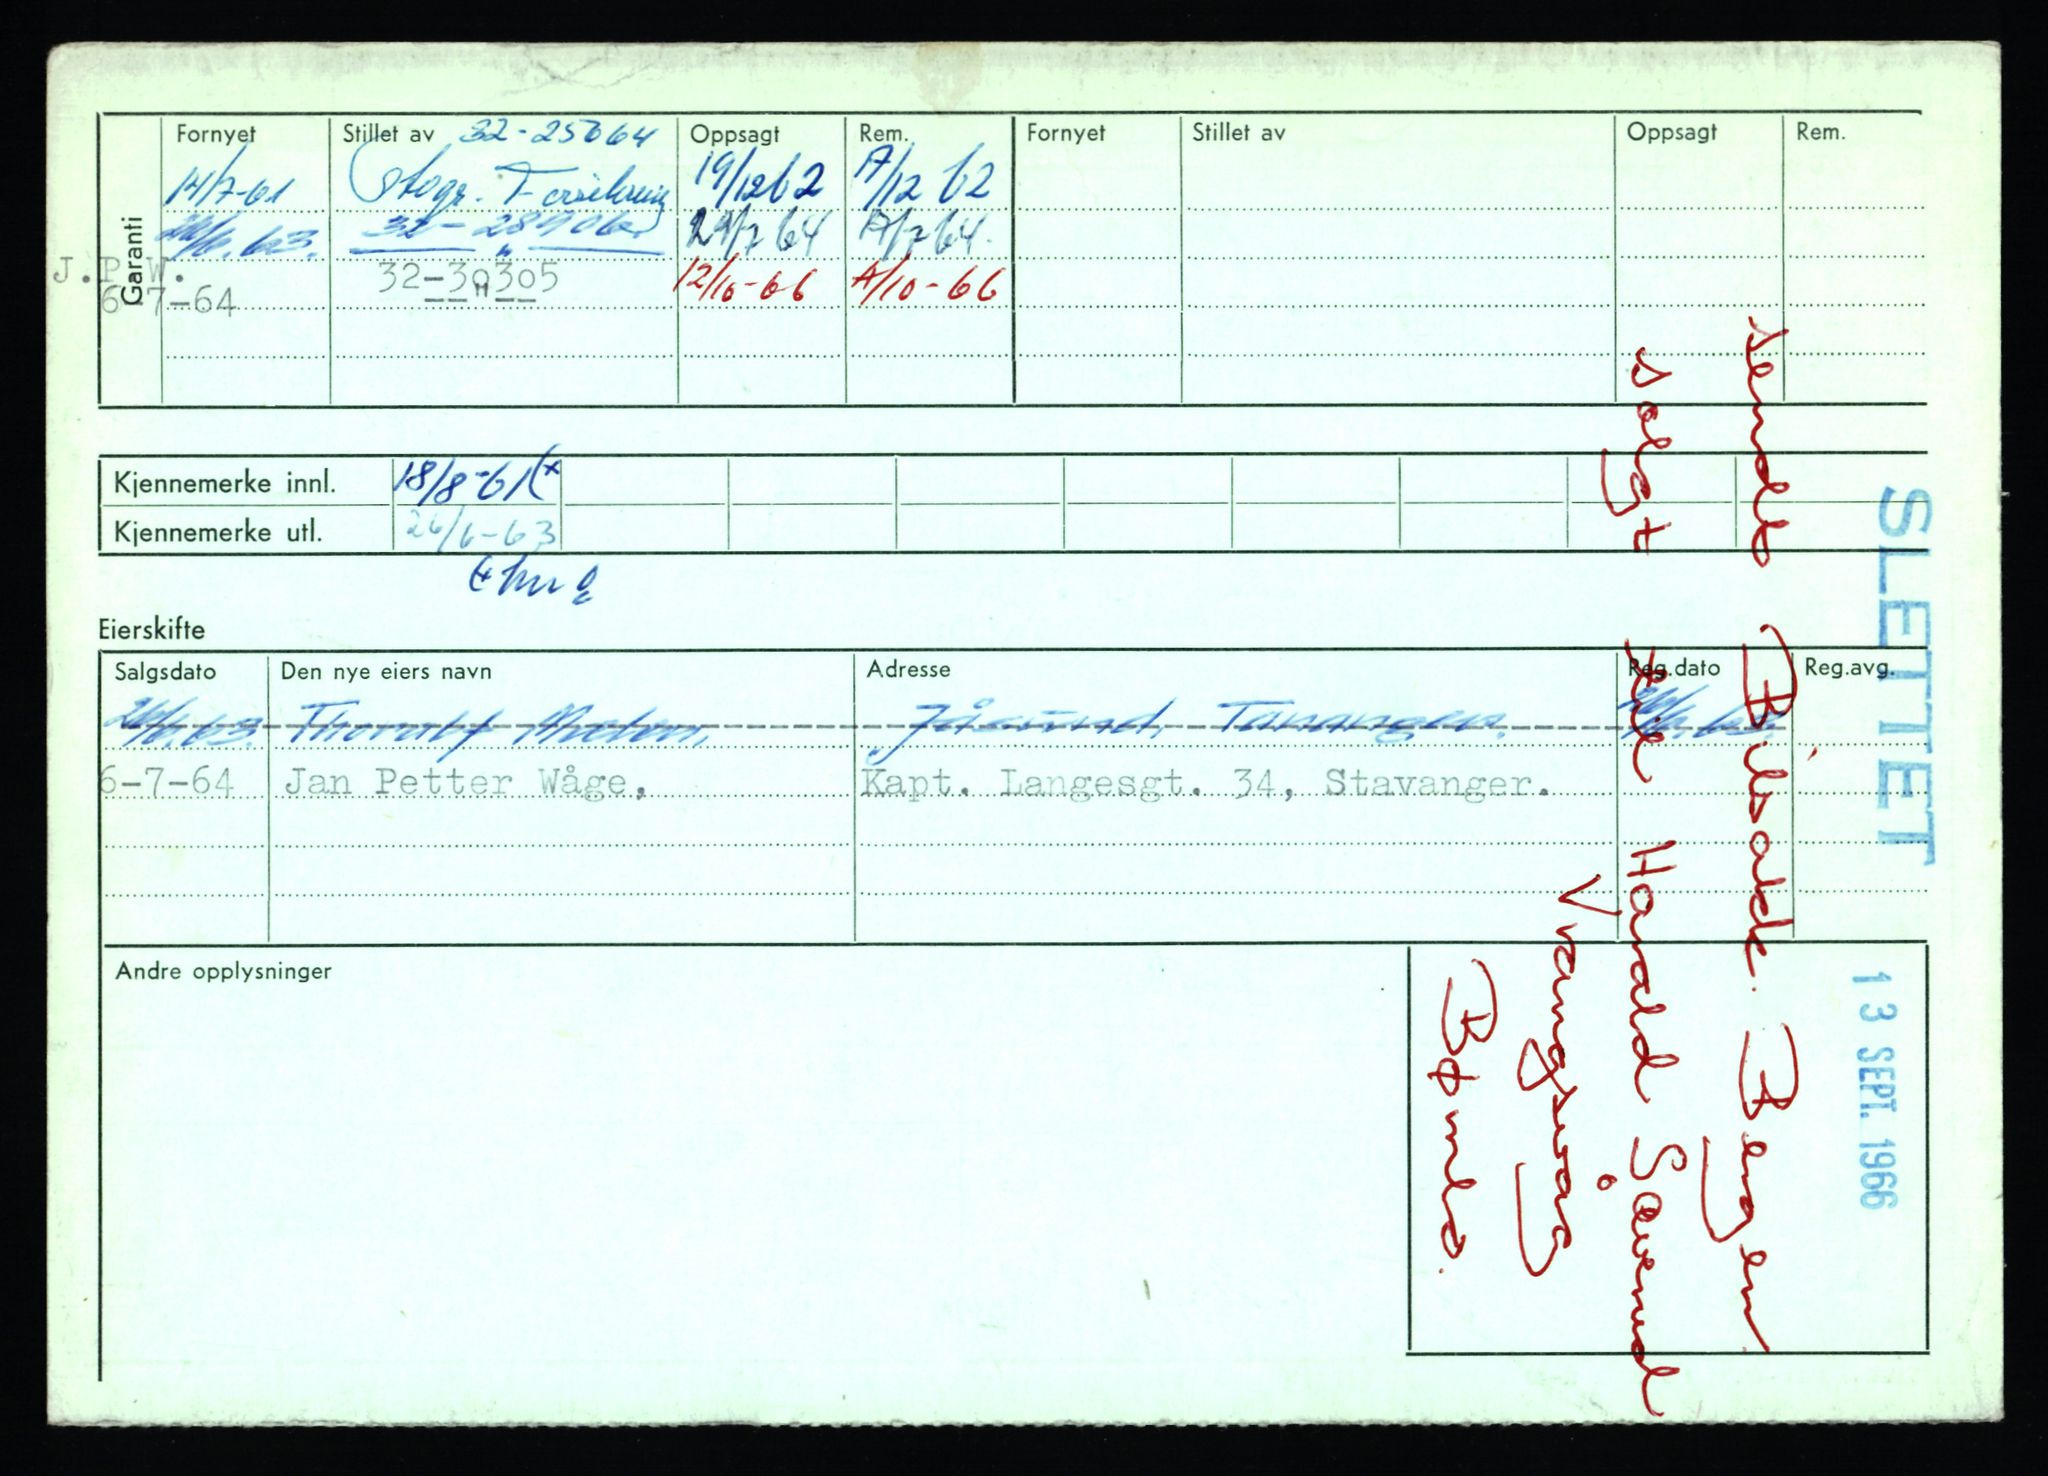 Garanti
Fornyet Stillet av 32-25664 Oppsagt Rem. Fornyet Stillet av Oppsagt Rem.
14/7-61 Forsikring 19/12 62 A/12 62
26/6.63. 29/7 64 A/7 64.
J.P.W.
6-7-64 32-30305 12/10-66 A/10-66
Kjennemerke innl. 18/8-61 (x
Kjennemerke utl. 26/6-63
Eierskifte
Salgsdato Den nye eiers navn Adresse Reg.dato Reg.avg.
26/6.63. Thoralf Jåsund, Tananger. 26/6.63.
6-7-64 Jan Petter Wåge, Kapt. Langesgt. 34, Stavanger.
Andre opplysninger
SLETTET
13 SEPT. 1966
sendt Bilsakk. Bergen
solgt til Harald Såvend
Vrangsvåg
Bømlo.